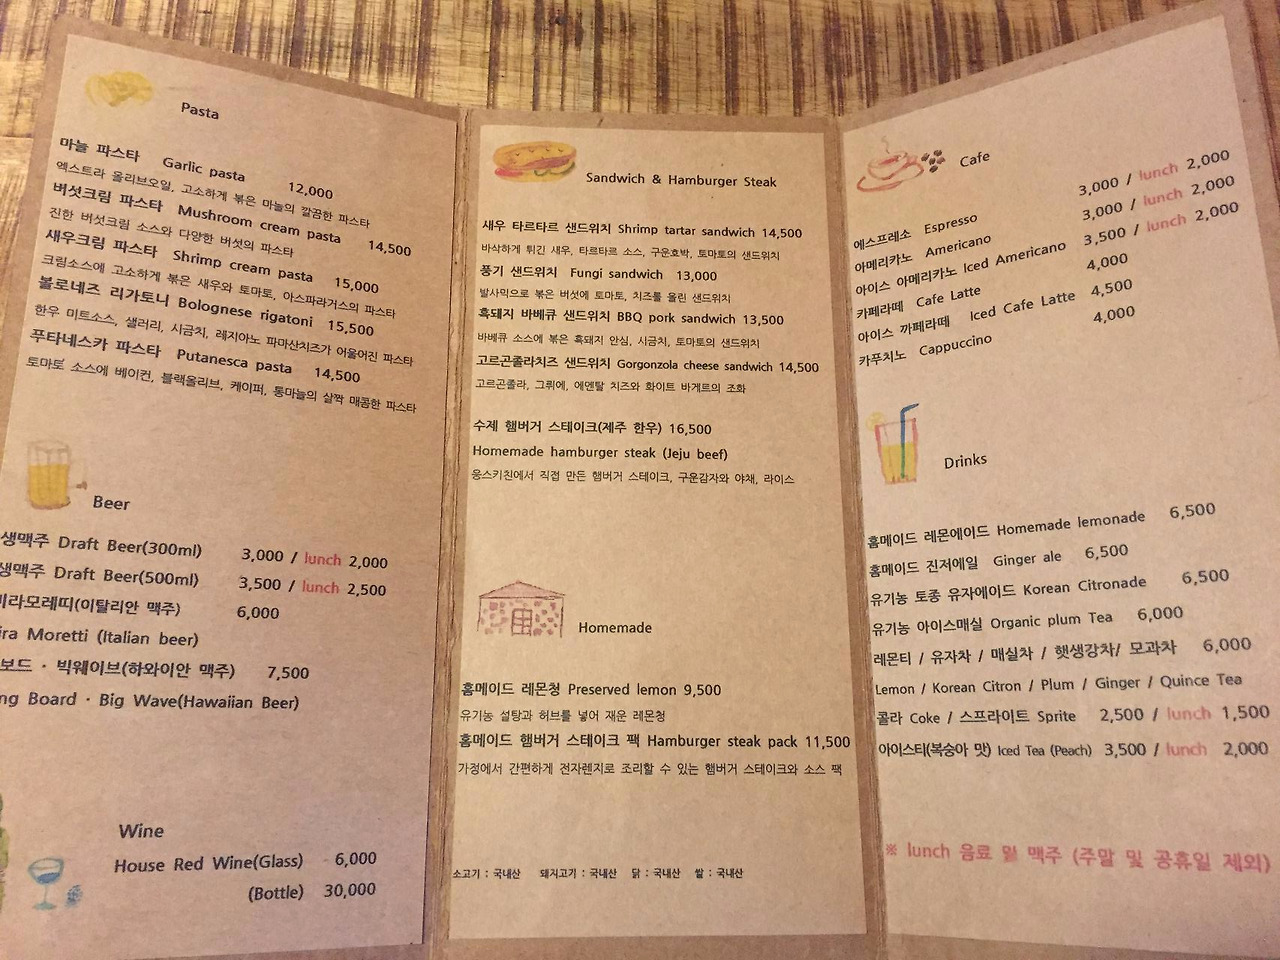 Pasta
마늘 파스타 Garlic pasta 12,000
엑스트라 올리브오일, 고소하게 볶은 마늘의 깔끔한 파스타
버섯크림 파스타 Mushroom cream pasta 14,500
진한 버섯크림 소스와 다양한 버섯의 파스타
새우크림 파스타 Shrimp cream pasta 15,000
크림소스에 고소하게 볶은 새우와 토마토, 아스파라거스의 파스타
볼로네즈 리가토니 Bolognese rigatoni 15,500
한우 미트소스, 샐러리, 시금치, 레지아노 파마산치즈가 어울어진 파스타
푸타네스카 파스타 Putanesca pasta 14,500
토마토 소스에 베이컨, 블랙올리브, 케이퍼, 통마늘의 살짝 매콤한 파스타
Beer
생맥주 Draft Beer(300ml) 3,000 / lunch 2,000
생맥주 Draft Beer(500ml) 3,500 / lunch 2,500
비라모레띠(이탈리안 맥주) 6,000
ira Moretti (Italian beer)
보드 · 빅웨이브(하와이안 맥주) 7,500
ng Board · Big Wave(Hawaiian Beer)
Wine
House Red Wine(Glass) 6,000
(Bottle) 30,000
Sandwich & Hamburger Steak
새우 타르타르 샌드위치 Shrimp tartar sandwich 14,500
바삭하게 튀긴 새우, 타르타르 소스, 구운호박, 토마토의 샌드위치
풍기 샌드위치 Fungi sandwich 13,000
발사믹으로 볶은 버섯에 토마토, 치즈를 올린 샌드위치
흑돼지 바베큐 샌드위치 BBQ pork sandwich 13,500
바베큐 소스에 볶은 흑돼지 안심, 시금치, 토마토의 샌드위치
고르곤졸라치즈 샌드위치 Gorgonzola cheese sandwich 14,500
고르곤졸라, 그뤼에, 에멘탈 치즈와 화이트 바게트의 조화
수제 햄버거 스테이크(제주 한우) 16,500
Homemade hamburger steak (Jeju beef)
웅스키친에서 직접 만든 햄버거 스테이크, 구운감자와 야채, 라이스
Homemade
홈메이드 레몬청 Preserved lemon 9,500
유기농 설탕과 허브를 넣어 재운 레몬청
홈메이드 햄버거 스테이크 팩 Hamburger steak pack 11,500
가정에서 간편하게 전자렌지로 조리할 수 있는 햄버거 스테이크와 소스 팩
소고기 : 국내산 돼지고기 : 국내산 닭 : 국내산 쌀 : 국내산
Cafe
에스프레소 Espresso 3,000 / lunch 2,000
아메리카노 Americano 3,000 / lunch 2,000
아이스 아메리카노 Iced Americano 3,500 / lunch 2,000
카페라떼 Cafe Latte 4,000
아이스 까페라떼 Iced Cafe Latte 4,500
카푸치노 Cappuccino 4,000
Drinks
홈메이드 레몬에이드 Homemade lemonade 6,500
홈메이드 진저에일 Ginger ale 6,500
유기농 토종 유자에이드 Korean Citronade 6,500
유기농 아이스매실 Organic plum Tea 6,000
레몬티 / 유자차 / 매실차 / 햇생강차/ 모과차 6,000
Lemon / Korean Citron / Plum / Ginger / Quince Tea
콜라 Coke / 스프라이트 Sprite 2,500 / lunch 1,500
아이스티(복숭아 맛) Iced Tea (Peach) 3,500 / lunch 2,000
※ lunch 음료 및 맥주 (주말 및 공휴일 제외)